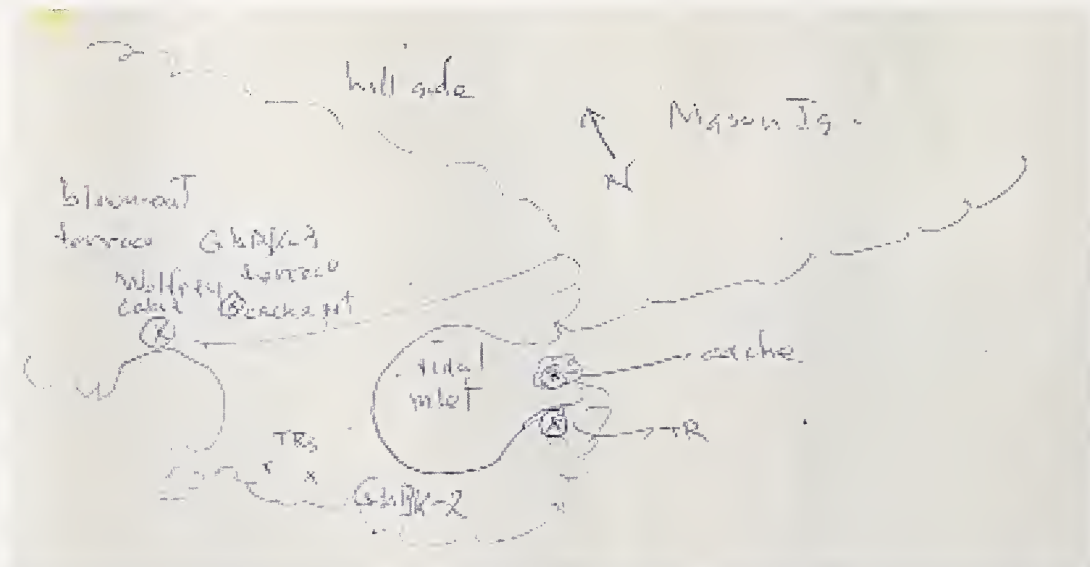 hill side
N
Mason Is.
blow-out
terrace GhBK-3
terrace
cache pit
tidal
inlet
cache
TR
TRs
GhBK-2